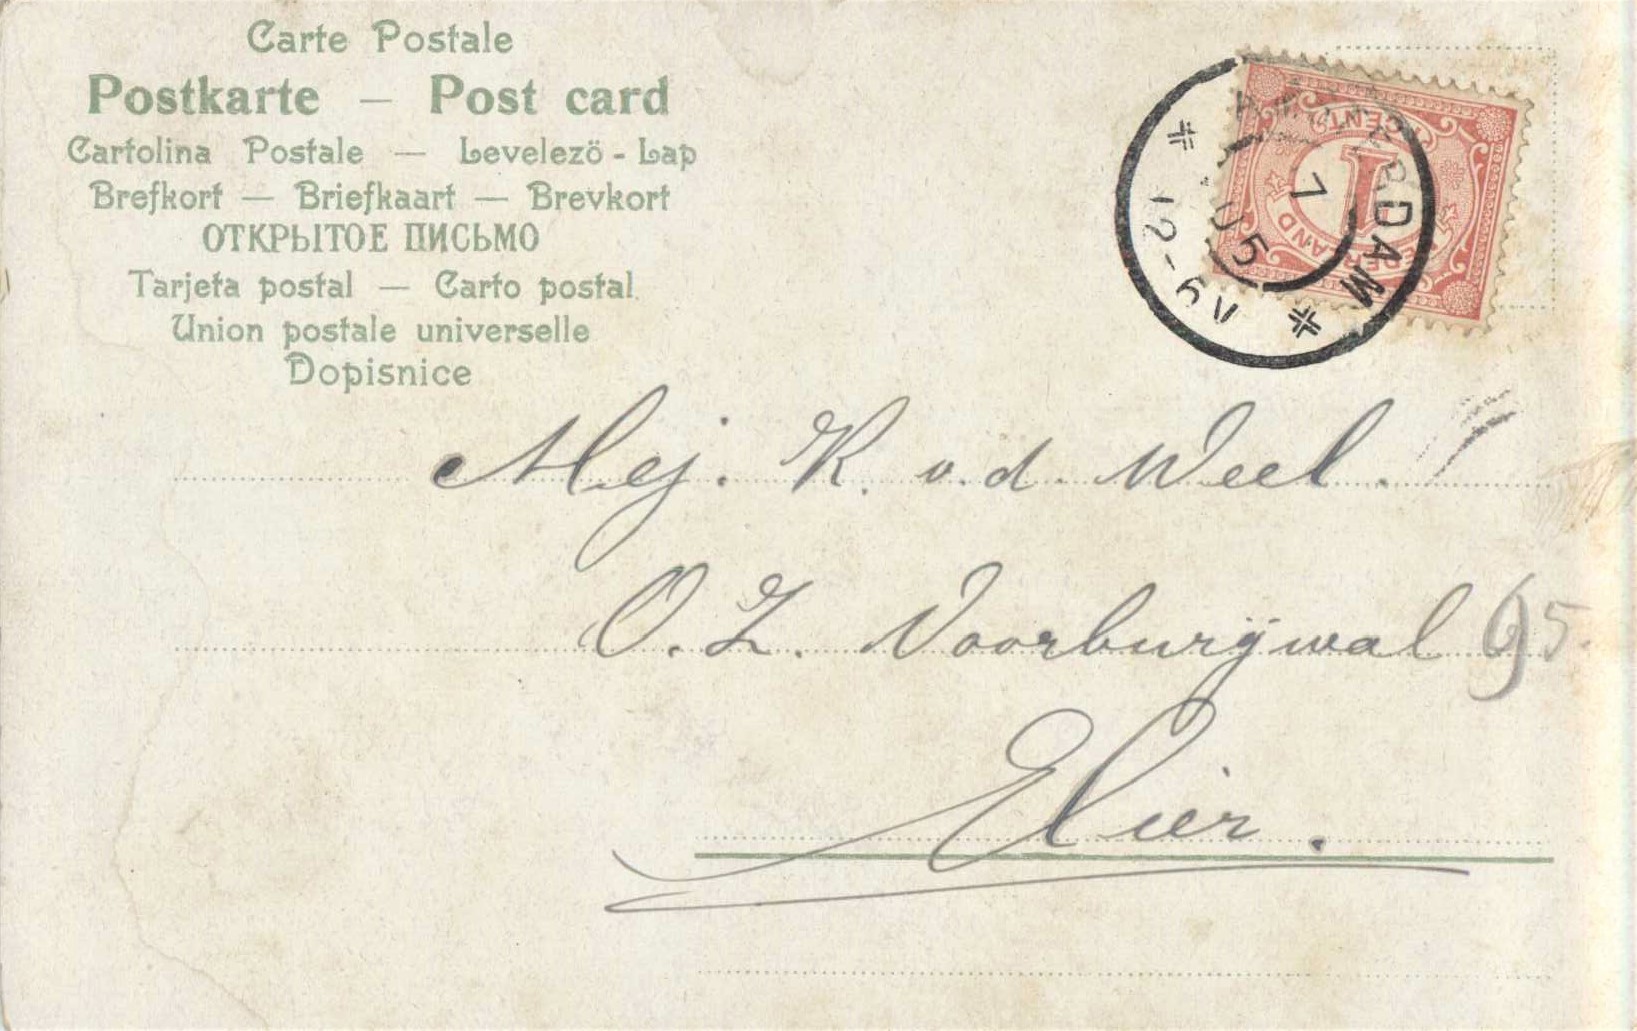 Carte Postale
Postkarte — Post card
Cartolina Postale — Levelezö - Lap
Brefkort — Briefkaart — Brevkort
ОТКРЫТОЕ ПИСЬМО
Tarjeta postal — Carto postal
Union postale universelle
Dopisnice
AMSTERDAM
7
05
12-6V
CENT
1
NEDERLAND
Mej. K. v.d. Weel.
O.Z. Voorburgwal 95.
Hier.